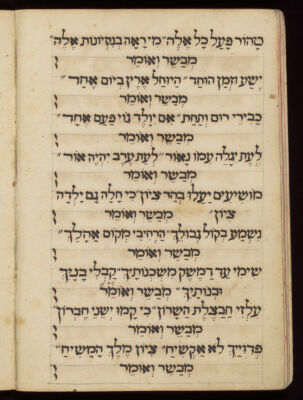 טהור פעל כל אלה״ מי ראה בנסיונות אלה״
מבשר ואומר
ישע וזמן הוחד״ היוחל ארץ ביום אחד״
מבשר ואומר
כבירי רום ותחת״ אם יולד גוי פעם אחד״
מבשר ואומר
לעת יגלה עמו נאור״ לעת ערב יהיה אור״
מבשר ואומר
מושיעים יעלו בהר ציון״ כי חלה גם ילדה
ציון״ מבשר ואומר
נשמע בקול גבולך״ הרחיבי מקום אהלך״
מבשר ואומר
שימי עד דמשק משכנותיך״ קבלי בניך
ובנותיך״ מבשר ואומר
עלזי חבצלת השרון״ כי קמו ישני חברון
מבשר ואומר
פדוייך לא אקשיח״ ציון מלך המשיח״
מבשר ואומר